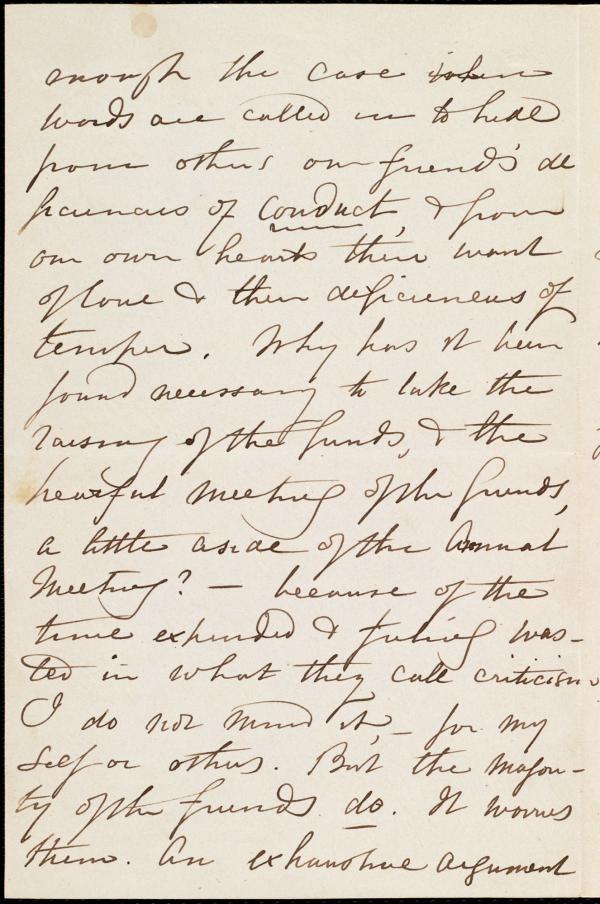 enough the case when
words are called in to hide
from others our friend's de
ficiencies of conduct, & from
our own hearts their want
of love & their deficiencies of
temper. Why has it been
found necessary to take the
raising of the funds, & the
hearful meeting of the friends,
a little aside of the Annual
Meeting? — because of the
time expended & feeling was-
ted in what they call criticism.
I do not mind it, – for my
self or others. But the majori-
ty of the friends do. It worries
them. An exhaustive argument